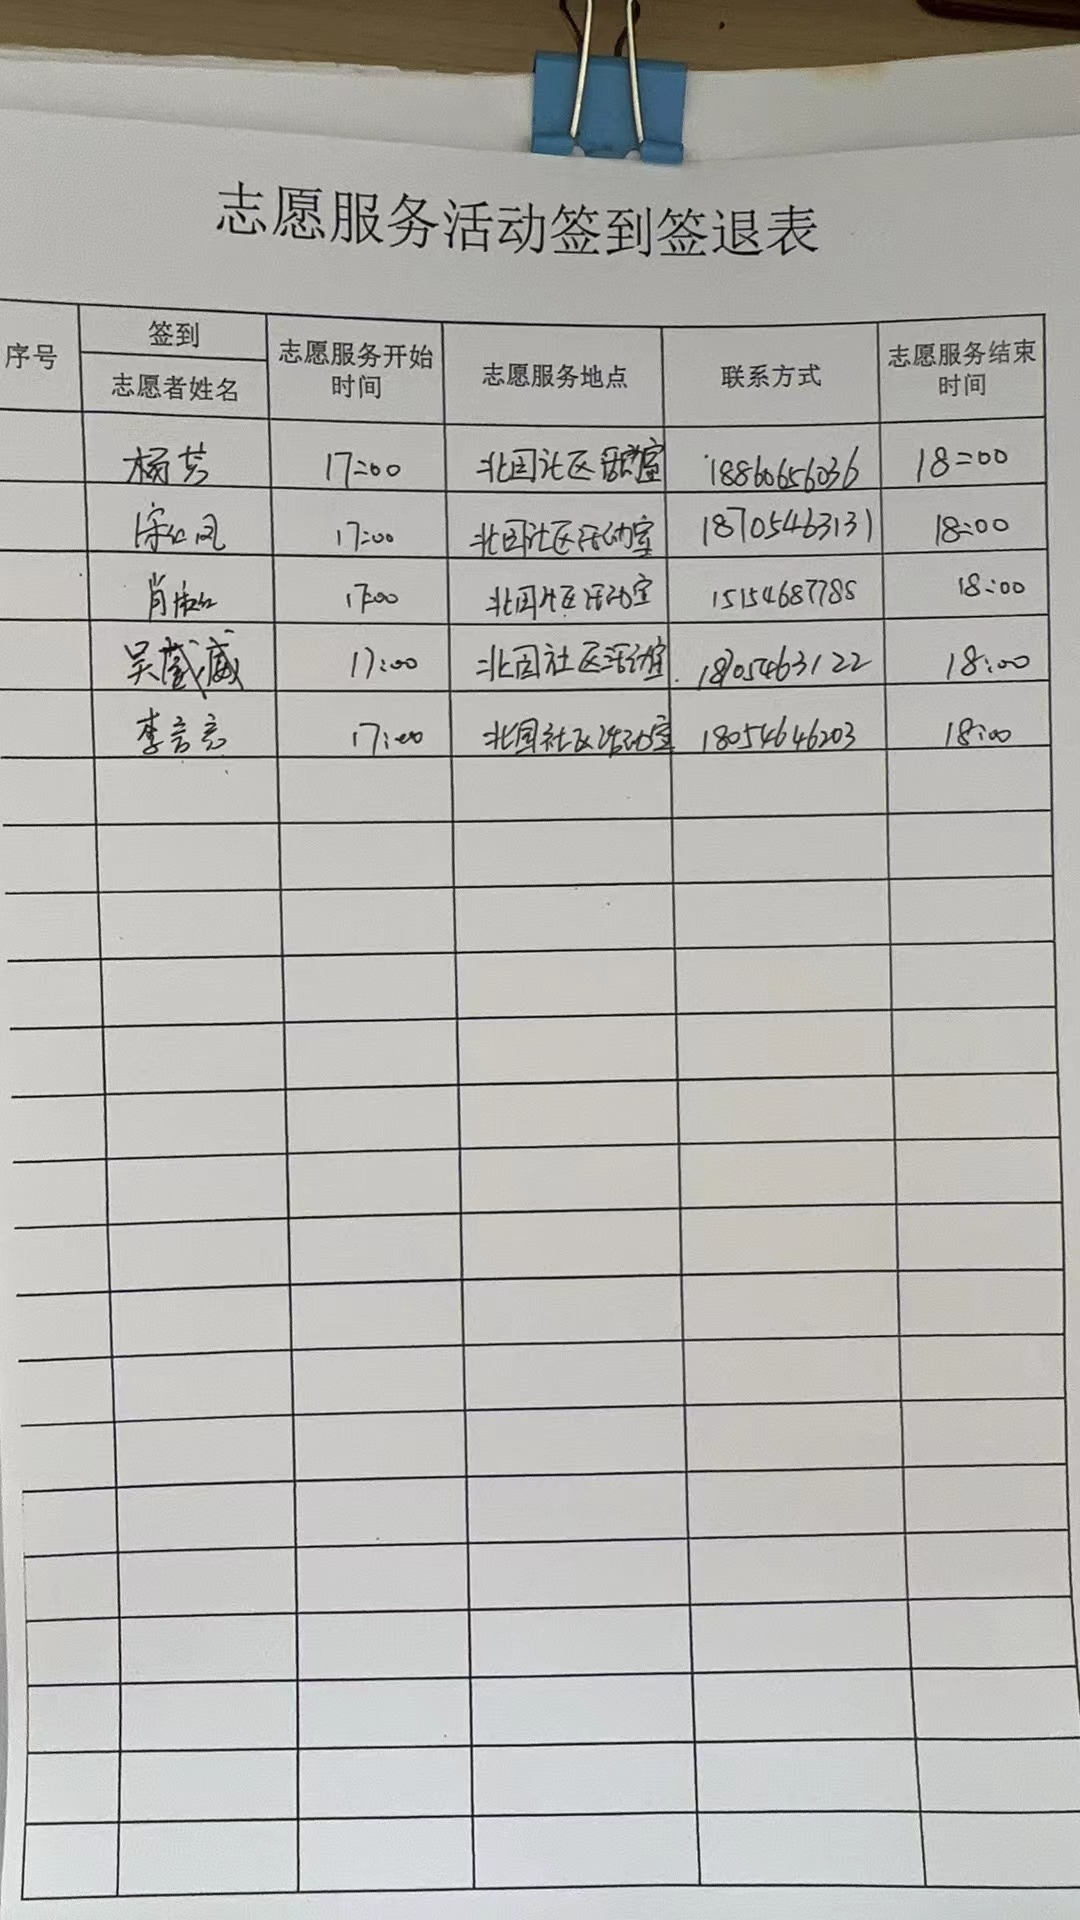 志愿服务活动签到签退表
序号 签到 志愿者姓名 志愿服务开始时间 志愿服务地点 联系方式 志愿服务结束时间
杨芳 17:00 北国社区活动室 18860656036 18:00
宋红凤 17:00 北国社区活动室 18705463131 18:00
肖 17:00 北国社区活动室 15154687788 18:00
吴薇薇 17:00 北国社区活动室 18705463122 18:00
李言亮 17:00 北国社区活动室 18054646203 18:00